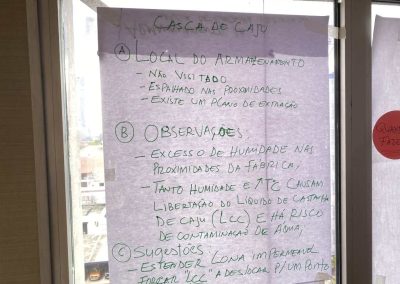 CASCA DE CAJU
Ⓐ LOCAL DO ARMAZENAMENTO
- NÃO VISITADO
- ESPALHADO NAS PROXIMIDADES
- EXISTE UM PLANO DE EXTRAÇÃO
Ⓑ OBSERVAÇÕES
- EXCESSO DE HUMIDADE NAS
PROXIMIDADES DA FÁBRICA,
- TANTO HUMIDADE E ↑TC CAUSAM
LIBERTAÇÃO DO LÍQUIDO DE CASTANHA
DE CAJU (LCC) E HÁ RISCO
DE CONTAMINAÇÃO DE AGUA,
Ⓒ SUGESTÕES:
- ESTENDER LONA IMPERMEAVEL
"LCC" A DESLOCAR P/ UM PONTO
QUAN
FAZE